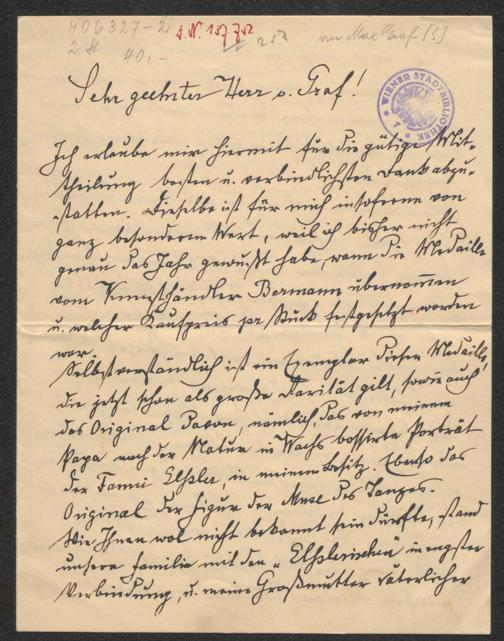 406327-2
J.N. 137752
2 St
40,-
252
an Max Graf [?]
WIENER STADTBIBLIOTHEK
Sehr geehrter Herr v. Graf!
Ich erlaube mir hiermit für die gütige Mit-
theilung besten u. verbindlichsten Dank abzu-
statten. Dieselbe ist für mich insoferne von
ganz besonderem Wert, weil ich bisher nicht
genau das Jahr gewußt habe, wann die Medaille
vom Kunsthändler Bermann übernommen
u. welcher Kaufpreis per Stück festgesetzt worden
war.
Selbstverständlich ist ein Exemplar dieser Medaille,
die jetzt schon als große Rarität gilt, sowie auch
das Original davon, nämlich, das von meinem
Papa nach der Natur in Wachs bossirte Porträt
der Fanni Elßler, in meinem Besitz. Ebenso das
Original der Figur der Muse des Tanzes.
Wie Ihnen wol nicht bekannt sein dürfte, stand
unsere Familie mit den „Elßlerischen" in engster
Verbindung, u. meine Großmutter väterlicher